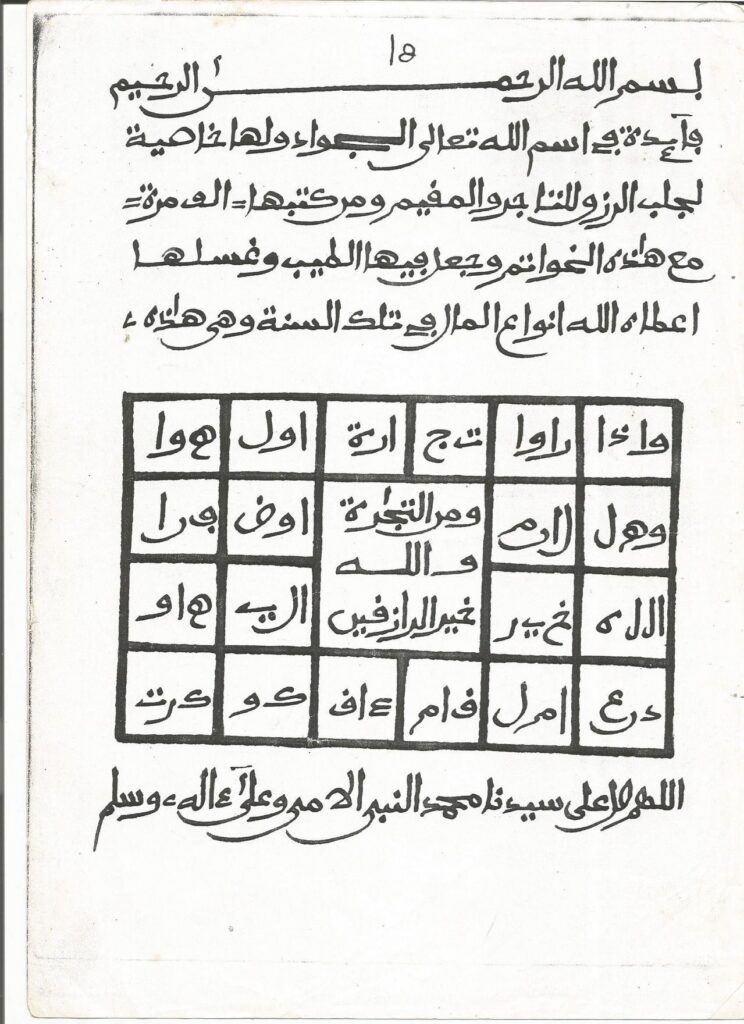 ١٥
بسم الله الرحمن الرحيم
فآيدة في اسم الله تعالى الجواد ولها خاصية
لجلب الرزق للتاجر والمقيم ومن كتبها = الف مرة =
مع هذه الخواتم وجعل فيها الطيب وغسلها
اعطاه الله انواع المال في تلك السنة وهي هذه،
واذا راوا ت ج ارة اول هوا
وهل لا ا ر م ومن التجارة اوض ف را
والله
الله خ ي ر خير الرازقين ال ي هاو
درع ام ر ل ف ا م ع ا ف ك د و ك د ر ت
اللهم صل على سيدنا محمد النبي الامي وعلى ءاله، وسلم